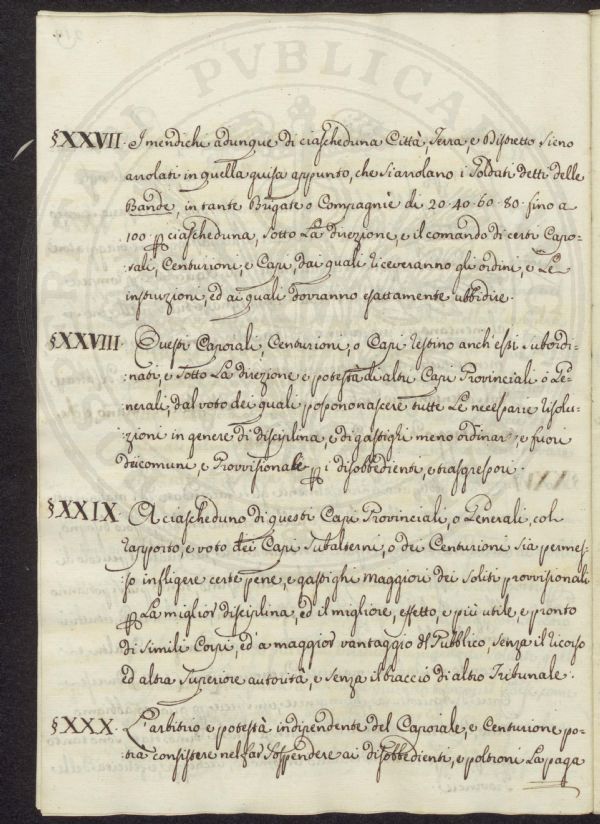 §XXVII. I mendichi adunque di ciascheduna Città Terra e Distretto sieno
arrolati in quella guisa appunto, che si arrolano i Soldati detti delle
Bande, in tante Brigate o Compagnie di 20. 40. 60. 80. fino a
100 p ciascheduna, sotto La direzione, e il comando di certi Capo-
:rali, Centurioni, e Capi, dai quali riceveranno gli ordini, e Le
instruzioni, ed ai quali dovranno esattamente ubbidire.
§XXVIII. Questi Caporali, Centurioni, o Capi restino anch'essi subordi-
:nati, e sotto La direzione e potestà di altri Capi Provinciali o Ge-
nerali, dal voto dei quali possono nascere tutte Le necessarie risolu-
:zioni in genere di disciplina, e di gastighi meno ordinar, e fuori
dei comuni, e Provvisionale p i disobbedienti, e trasgressori.
§XXIX. A ciascheduno di questi Capi Provinciali, o Generali, col
rapporto, e voto dei Capi subalterni, o dei Centurioni sia permes-
:so infligere certe pene, e gastighi maggiori dei soliti provvisionali
p La miglior disciplina, ed il migliore, effetto, e più utile, e pronto
di simili Corpi, ed a maggior vantaggio del Pubblico, senza il ricorso
ed altra superiore autorità, e senza il braccio di altro Tribunale.
§XXX. L'arbitrio e potestà indipendente del Caporale, e Centurione po-
trà consistere nel far sospendere ai disobbedienti, e poltroni La paga
PUBLICAE